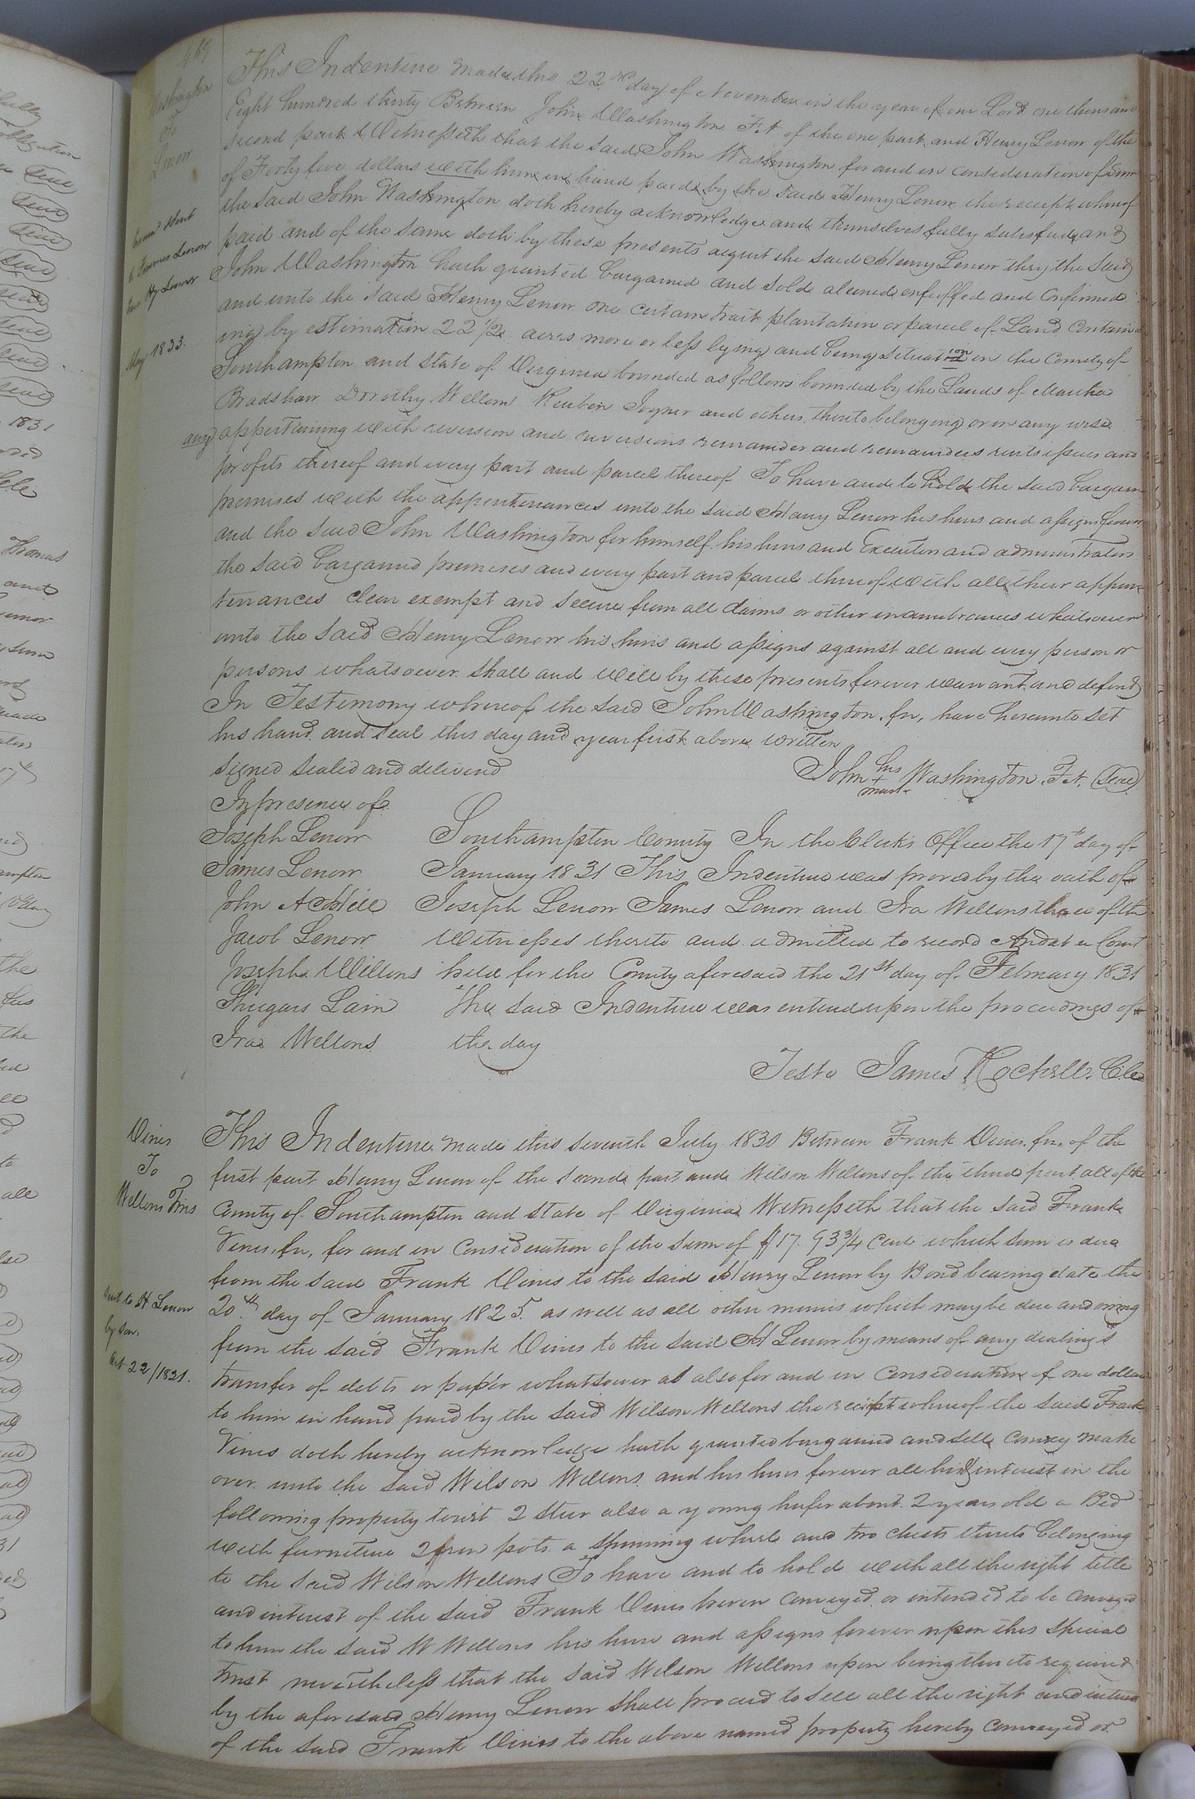 Washington
To
Lenow
to Henry Lenow
May 1833.
This Indenture made this 22nd day of November in the year of our Lord one thousand
Eight hundred thirty Between John Washington F.N. of the one part and Henry Lenow of the
second part Witnesseth that the said John Washington for and in consideration of
of Forty five dollars with him in hand paid by the said Henry Lenow the receipt whereof
the said John Washington doth hereby acknowledge and themselves fully satisfied and
paid and of the same doth by these presents acquit the said Henry Lenow they the said
John Washington hath granted bargained and sold aliened enfeoffed and Confirmed
and unto the said Henry Lenow one certain tract plantation or parcel of Land Contain
ing by estimation 22 1/2 acres more or less lying and being situate in the County of
Southampton and state of Virginia bounded as follows bounded by the Lands of Martha
Bradshaw Dorothy Wellons Reuben Joyner and others thereto belonging or in any wise
any appertaining with reversion and reversions remainder and remainders rents issues and
profits thereof and every part and parcel thereof To have and to hold the said bargain
premises with the appertenances unto the said Henry Lenow his heirs and assigns forever
and the said John Washington for himself his heirs and Executors and administrators
the said bargained premises and every part and parcel thereof with all their appur
tenances clear exempt and secure from all claims or other incumbrances whatsoever
unto the said Henry Lenow his heirs and assigns against all and every person or
persons whatsoever shall and will by these presents forever warrant and defend
In Testimony whereof the said John Washington fn, have hereunto set
his hand and seal this day and year first above written
signed sealed and delivered John his + mark Washington F.N. (Seal)
In presence of
Joseph Lenow Southampton County In the Clerks Office the 17th day of
James Lenow January 1831 This Indenture was proved by the oath of
John A Hill Joseph Lenow James Lenow and Ira Wellons three of the
Jacob Lenow Witnesses thereto and admitted to record And at a Court
Joseph Wellons held for the County aforesaid the 21st day of February 1831
Shugars Lain The said Indenture was entered upon the proceedings of
Ira Wellons the day
Teste James Rochelle. Clk
Vines
To
Wellons Trus
to H Lenow
by
Oct 22/1831.
This Indenture made this seventh July 1830 Between Frank Vines, fn, of the
first part Henry Lenow of the second part and Wilson Wellons of the third part all of the
County of Southampton and state of Virginia Witnesseth that the said Frank
Vines, fn, for and in Consideration of the sum of $17.93 3/4 cents which sum is due
from the said Frank Vines to the said Henry Lenow by Bond bearing date the
20th day of January 1825. as well as all other monies which may be due and owing
from the said Frank Vines to the said H Lenow by means of any dealings
transfer of debts or paper whatsoever as also for and in Consideration of one dollar
to him in hand paid by the said Wilson Wellons the receipt whereof the said Frank
Vines doth hereby acknowledge hath granted bargained and sell Convey make
over unto the said Wilson Wellons and his heirs forever all his interest in the
following property towit 2 steer also a young heifer about 2 years old a Bed
with furniture 2 iron pots a spinning wheel and two chests thereto belonging
to the said Wilson Wellons To have and to hold with all the right title
and interest of the said Frank Vines herein Conveyed or intended to be conveyed
to him the said W Wellons his heirs and assigns forever upon this special
trust nevertheless that the said Wilson Wellons upon being thereto required
by the aforesaid Henry Lenow shall proceed to sell all the right and interest
of the said Frank Vines to the above named property hereby conveyed or